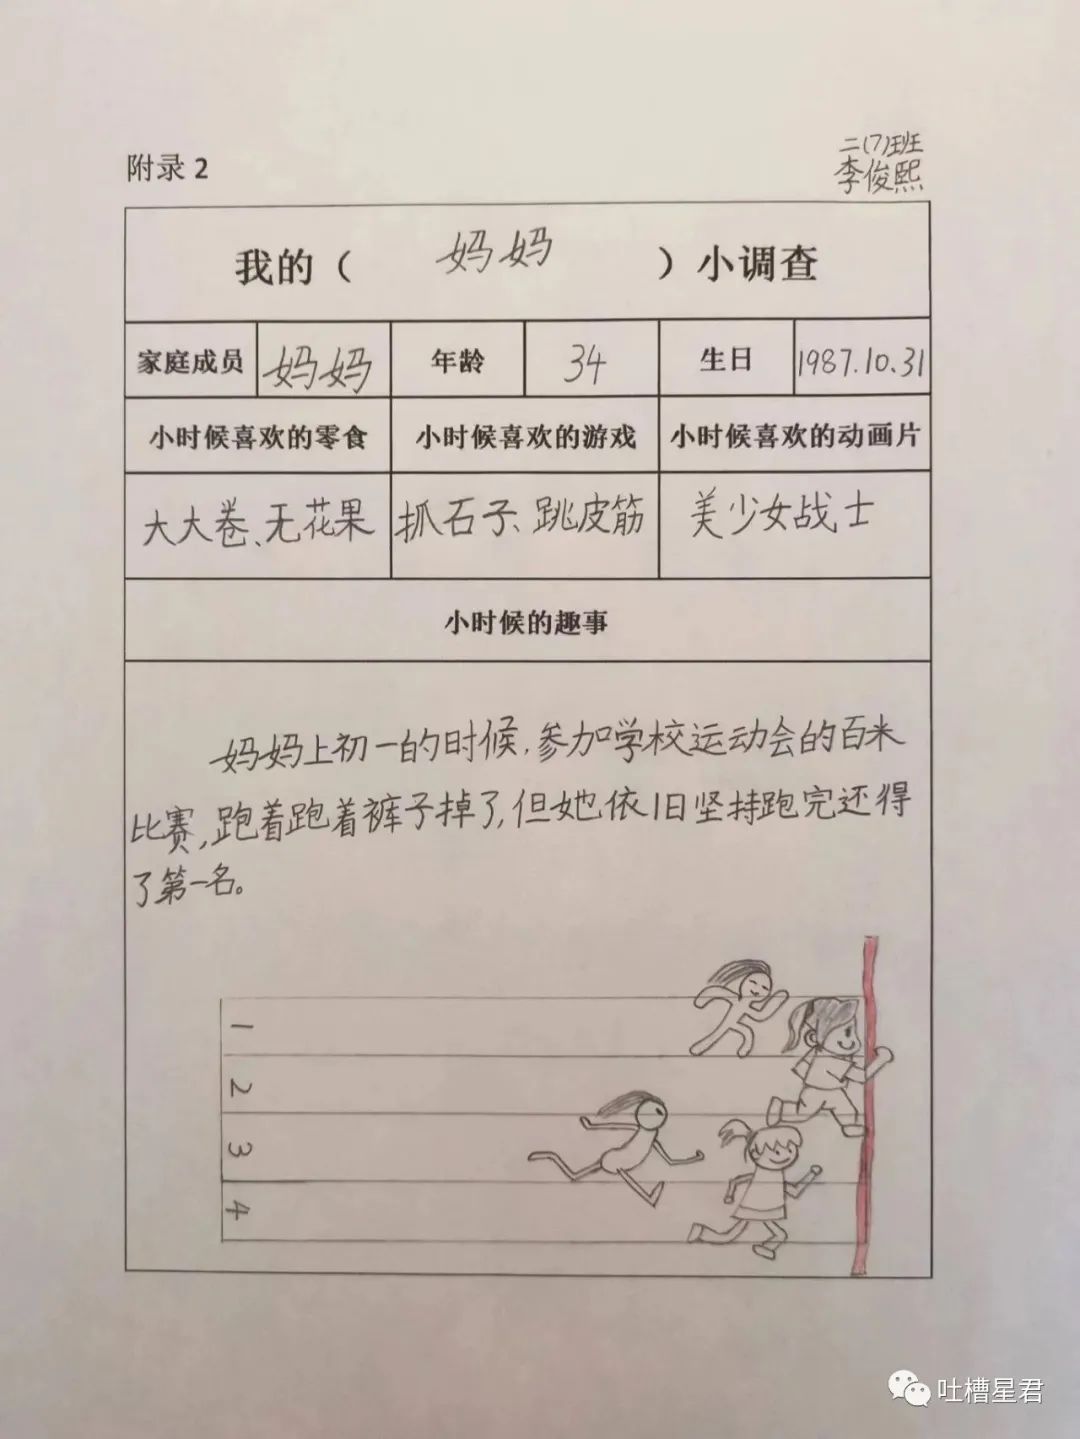 附录2
二(7)班
李俊熙
我的（ 妈妈 ）小调查
家庭成员 妈妈 年龄 34 生日 1987.10.31
小时候喜欢的零食 小时候喜欢的游戏 小时候喜欢的动画片
大大卷、无花果 抓石子、跳皮筋 美少女战士
小时候的趣事
妈妈上初一的时候，参加学校运动会的百米
比赛，跑着跑着裤子掉了，但她依旧坚持跑完还得
了第一名。
1
2
3
4
吐槽星君